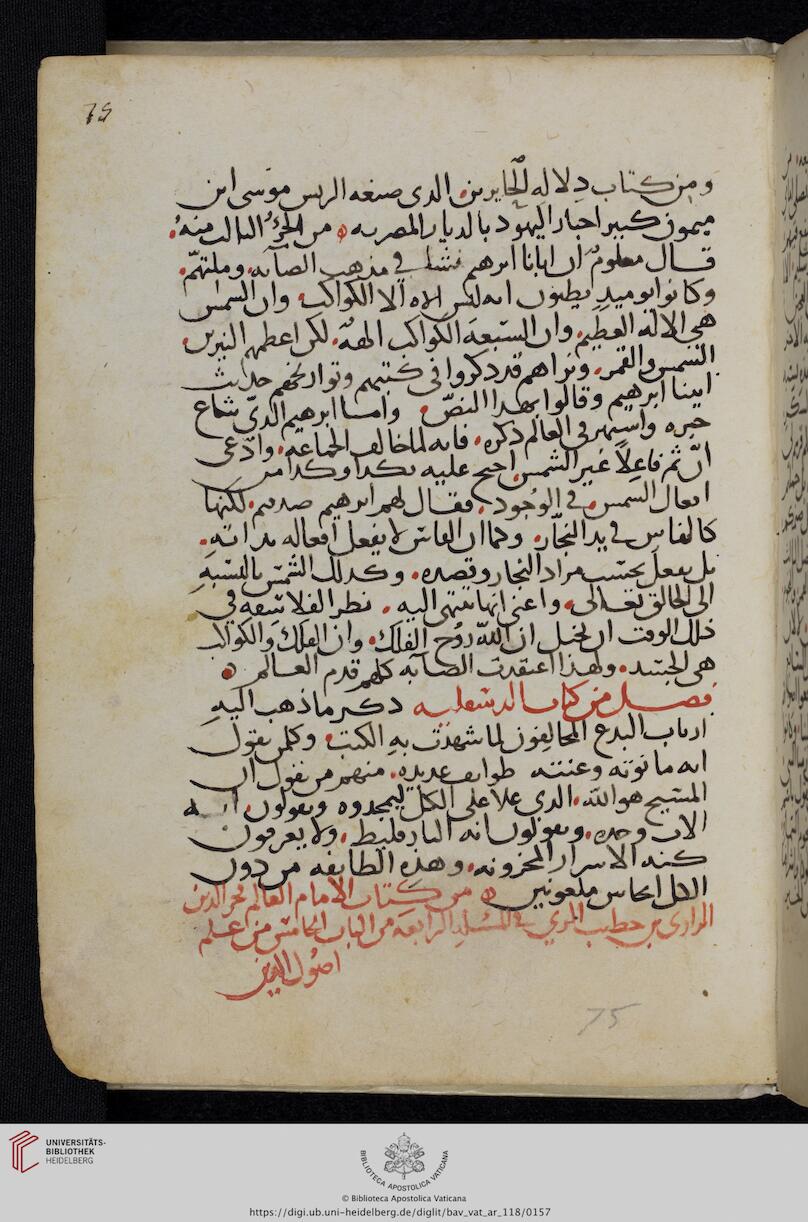 75
ومن كتاب دلاله الحايرين الدى صنعه الريس موسى ابن
ميمون كبير احبار اليهود بالديار المصريه من الجزؤ الثالث منهُ
قال معلومٌ ان ابانا ابرهيم نشا في مذهب الصآبه وملتهمْ
وكانوا يوميدٍ يظنون انه ليس الاه الا الكواكب وان الشمس
هي الالاه العظيم وان السبعة الكواكب الهةٌ لكن اعظمهم النيرين
الشمس والقمر ونراهم قد ذكروا في كتبهم وتواريخهم حديث
ابينا ابرهيم وقالوا بهذا النصّ واما ابرهيم الديّ شاع
خبره واشتهر في العالم ذكره فانه لما خالف الجماعه وادّعى
انّ ثم فاعلاً غير الشمس احتج عليه بكذا وكذا من
افعال الشمس في الوجود فقال لهم ابرهيم صدقتم لكنها
كالفاس في يد النجّار وكما ان الفاس لا يفعل افعاله بذاته
بل يفعل بحسب مراد النجار وقصده وكذلك الشمس بالنسبهِ
الى الخالق تعالى واعني انها تنتهى اليه نظر الفلاسفه في
ذلك الوقت ان تخيل ان الله روُح الفلك وان الفلك والكواكب
هي الجسد ولهذا اعتقدت الصابه كلهم قدم العالم
فصل من كتاب الدسقليه ذكر ما ذهب اليهِ
ارباب البدع المخالفون لما شهدت بهِ الكتب وكمن يقول
طوايف عديده منهم من يقول ان
المسيح هو الله الدى علا على الكل ليمجدوه ويقولون انه
الاب وحده ويقولون انه البارقليط ولا يعرفون
كنه الاسرار المخزونه وهذه الطايفه من دون
الكل انجاس ملعونين من كتاب الامام العالم فخر الدين
الرازى بن خطيب الري في المسله الرابعة من الباب الخامس من علم
اصُول الدين
75
UNIVERSITÄTS-
BIBLIOTHEK
HEIDELBERG
BIBLIOTECA APOSTOLICA VATICANA
© Biblioteca Apostolica Vaticana
https://digi.ub.uni-heidelberg.de/diglit/bav_vat_ar_118/0157